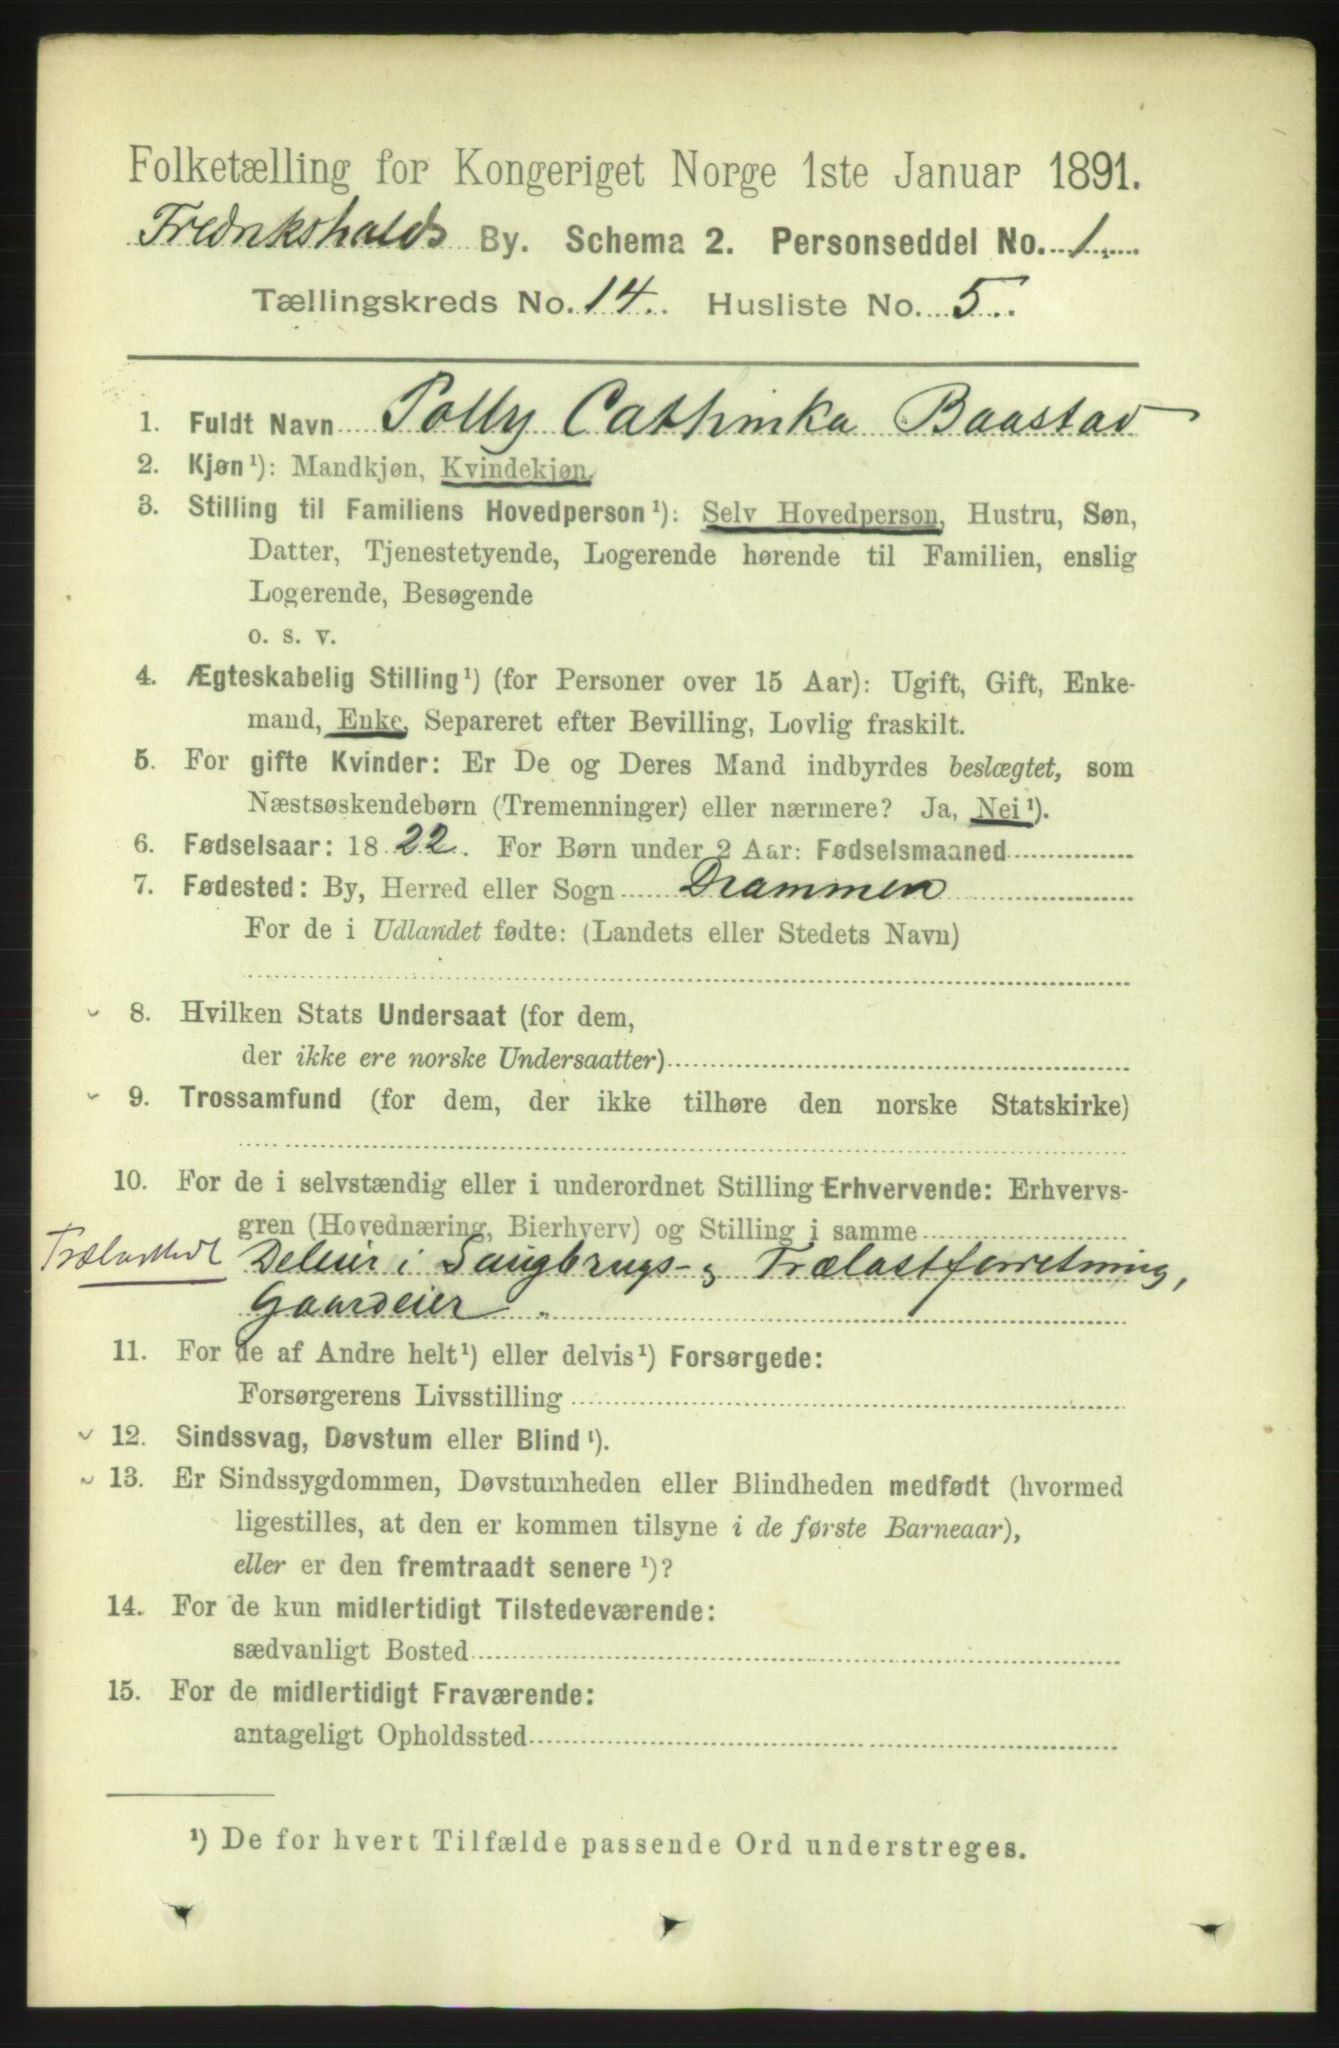 Folketælling for Kongeriget Norge 1ste Januar 1891.
Fredrikshalds By. Schema 2. Personseddel No. 1.
Tællingskreds No. 14. Husliste No. 5.
1. Fuldt Navn Polly Cathinka Baastad
2. Kjøn¹): Mandkjøn, Kvindekjøn.
3. Stilling til Familiens Hovedperson¹): Selv Hovedperson, Hustru, Søn,
Datter, Tjenestetyende, Logerende hørende til Familien, enslig
Logerende, Besøgende
o. s. v.
4. Ægteskabelig Stilling¹) (for Personer over 15 Aar): Ugift, Gift, Enke-
mand, Enke, Separeret efter Bevilling, Lovlig fraskilt.
5. For gifte Kvinder: Er De og Deres Mand indbyrdes beslægtet, som
Næstsøskendebørn (Tremenninger) eller nærmere? Ja, Nei¹).
6. Fødselsaar: 1822. For Børn under 2 Aar: Fødselsmaaned
7. Fødested: By, Herred eller Sogn Drammen
For de i Udlandet fødte: (Landets eller Stedets Navn)
8. Hvilken Stats Undersaat (for dem,
der ikke ere norske Undersaatter)
9. Trossamfund (for dem, der ikke tilhøre den norske Statskirke)
10. For de i selvstændig eller i underordnet Stilling Erhvervende: Erhvervs-
gren (Hovednæring, Bierhverv) og Stilling i samme
Deleier i Saugbrugs- og Trælastforretning,
Gaardeier.
11. For de af Andre helt¹) eller delvis¹) Forsørgede:
Forsørgerens Livsstilling
12. Sindssvag, Døvstum eller Blind¹).
13. Er Sindssygdommen, Døvstumheden eller Blindheden medfødt (hvormed
ligestilles, at den er kommen tilsyne i de første Barneaar),
eller er den fremtraadt senere¹)?
14. For de kun midlertidigt Tilstedeværende:
sædvanligt Bosted
15. For de midlertidigt Fraværende:
antageligt Opholdssted
¹) De for hvert Tilfælde passende Ord understreges.